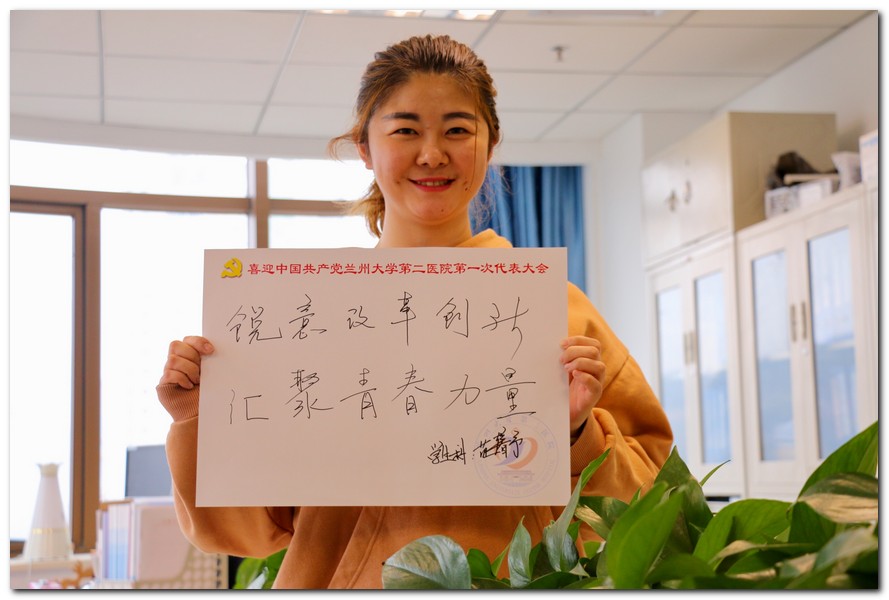 喜迎中国共产党兰州大学第二医院第一次代表大会
锐意改革创新
汇聚青春力量
学生科: